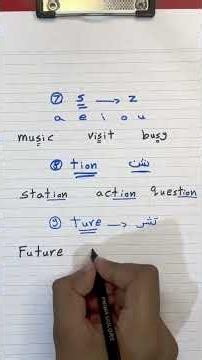 ⑦ s → z
a e i o u
music visit busy
⑧ tion شن
station action question
⑨ ture → تشر
Future